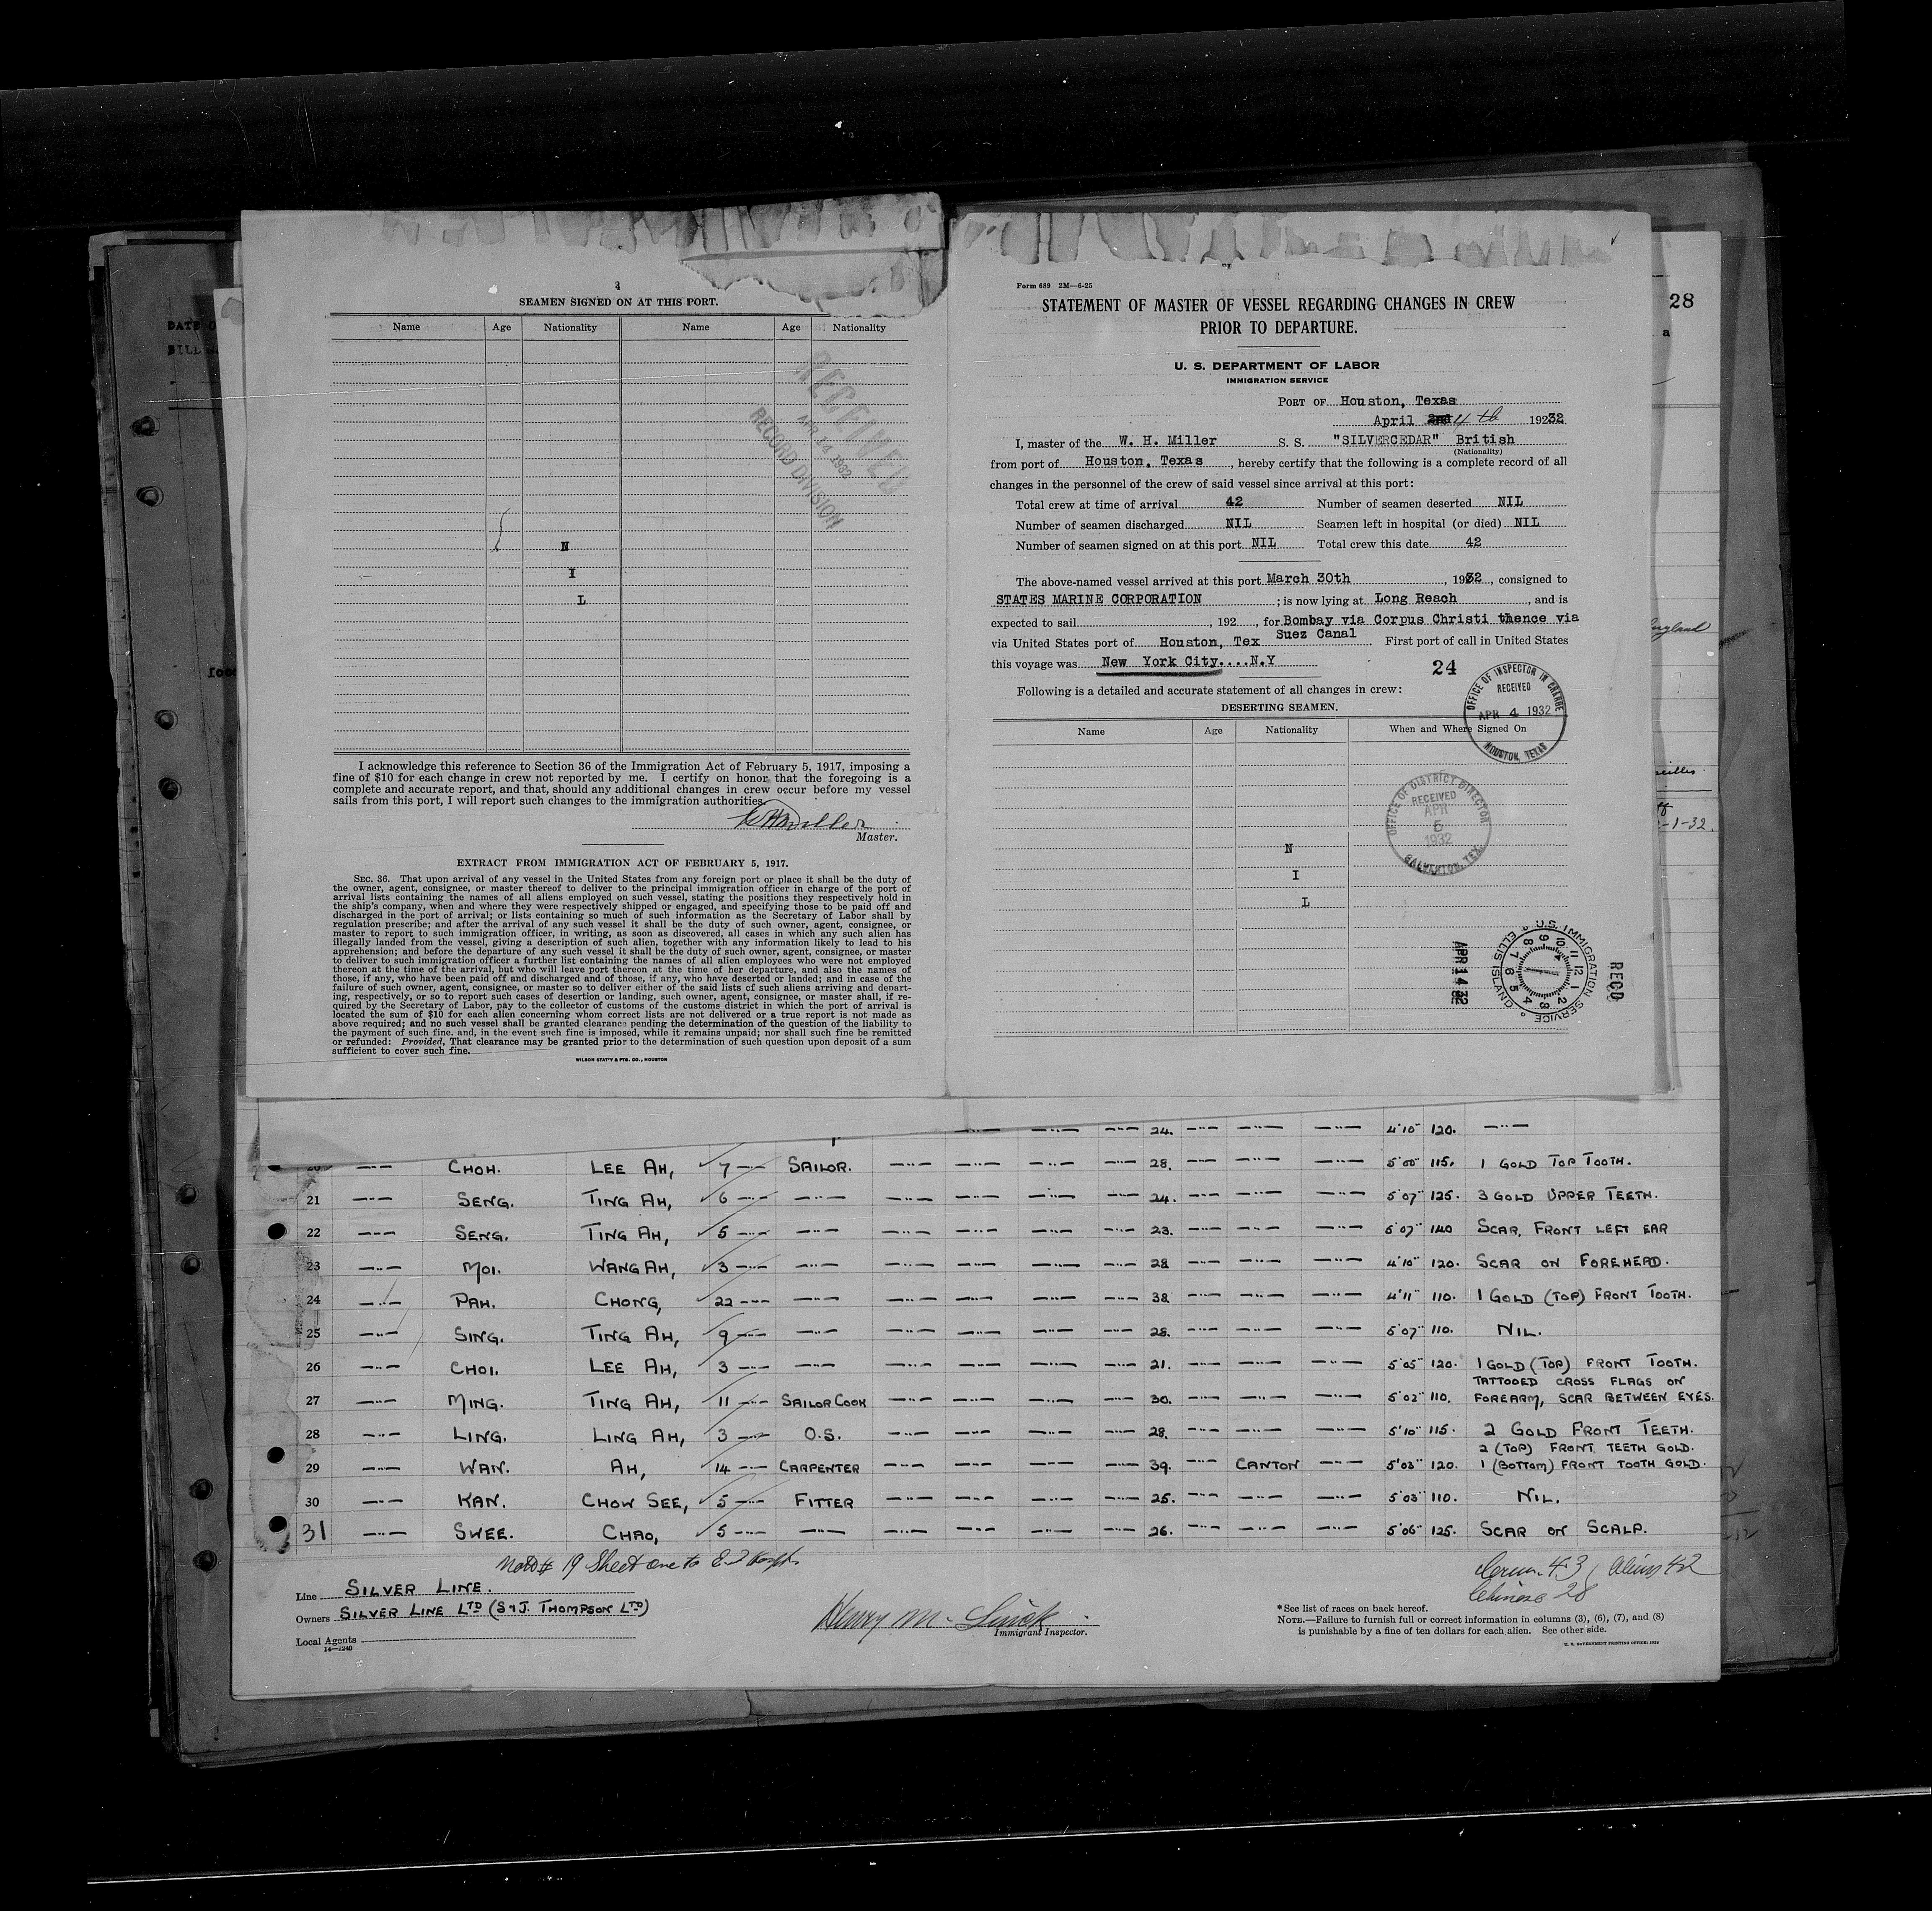 2
SEAMEN SIGNED ON AT THIS PORT.
Name Age Nationality Name Age Nationality
RECEIVED
APR 14 1932
RECORD DIVISION
N
I
L
I acknowledge this reference to Section 36 of the Immigration Act of February 5, 1917, imposing a
fine of $10 for each change in crew not reported by me. I certify on honor that the foregoing is a
complete and accurate report, and that, should any additional changes in crew occur before my vessel
sails from this port, I will report such changes to the immigration authorities.
WHMiller
Master.
EXTRACT FROM IMMIGRATION ACT OF FEBRUARY 5, 1917.
SEC. 36. That upon arrival of any vessel in the United States from any foreign port or place it shall be the duty of
the owner, agent, consignee, or master thereof to deliver to the principal immigration officer in charge of the port of
arrival lists containing the names of all aliens employed on such vessel, stating the positions they respectively hold in
the ship's company, when and where they were respectively shipped or engaged, and specifying those to be paid off and
discharged in the port of arrival; or lists containing so much of such information as the Secretary of Labor shall by
regulation prescribe; and after the arrival of any such vessel it shall be the duty of such owner, agent, consignee, or
master to report to such immigration officer, in writing, as soon as discovered, all cases in which any such alien has
illegally landed from the vessel, giving a description of such alien, together with any information likely to lead to his
apprehension; and before the departure of any such vessel it shall be the duty of such owner, agent, consignee, or master
to deliver to such immigration officer a further list containing the names of all alien employees who were not employed
thereon at the time of the arrival, but who will leave port thereon at the time of her departure, and also the names of
those, if any, who have been paid off and discharged and of those, if any, who have deserted or landed; and in case of the
failure of such owner, agent, consignee, or master so to deliver either of the said lists of such aliens arriving and depart-
ing, respectively, or so to report such cases of desertion or landing, such owner, agent, consignee, or master shall, if re-
quired by the Secretary of Labor, pay to the collector of customs of the customs district in which the port of arrival is
located the sum of $10 for each alien concerning whom correct lists are not delivered or a true report is not made as
above required; and no such vessel shall be granted clearance pending the determination of the question of the liability to
the payment of such fine, and, in the event such fine is imposed, while it remains unpaid; nor shall such fine be remitted
or refunded: Provided, That clearance may be granted prior to the determination of such question upon deposit of a sum
sufficient to cover such fine.
WILSON STAT'Y & PTG. CO., HOUSTON
Form 689 2M—6-25
STATEMENT OF MASTER OF VESSEL REGARDING CHANGES IN CREW
PRIOR TO DEPARTURE.
U. S. DEPARTMENT OF LABOR
IMMIGRATION SERVICE
PORT OF Houston, Texas
April 4th 1932
I, master of the W. H. Miller S. S. "SILVERCEDAR" British
(Nationality)
from port of Houston, Texas, hereby certify that the following is a complete record of all
changes in the personnel of the crew of said vessel since arrival at this port:
Total crew at time of arrival 42 Number of seamen deserted NIL
Number of seamen discharged NIL Seamen left in hospital (or died) NIL
Number of seamen signed on at this port NIL Total crew this date 42
The above-named vessel arrived at this port March 30th, 1932, consigned to
STATES MARINE CORPORATION; is now lying at Long Reach, and is
expected to sail , 192 , for Bombay via Corpus Christi thence via
Suez Canal
via United States port of Houston, Tex First port of call in United States
this voyage was New York City....N.Y
24
Following is a detailed and accurate statement of all changes in crew:
DESERTING SEAMEN.
Name Age Nationality When and Where Signed On
OFFICE OF INSPECTOR IN CHARGE
RECEIVED
APR 4 1932
HOUSTON, TEXAS
OFFICE OF DISTRICT DIRECTOR
RECEIVED
APR
5
1932
GALVESTON, TEX.
N
I
L
APR 14 32
U.S. IMMIGRATION SERVICE ELLIS ISLAND
RECD
28
24. —"— —"— 4'10" 120. —"—
20 —"— CHOH. LEE AH, 7 —"— SAILOR. —"— —"— —"— —"— 28. —"— —"— —"— 5'05" 115. 1 GOLD TOP TOOTH.
21 —"— SENG. TING AH, 6 —"— —"— —"— —"— —"— —"— 24. —"— —"— —"— 5'07" 125. 3 GOLD UPPER TEETH.
22 —"— SENG. TING AH, 5 —"— —"— —"— —"— —"— —"— 23. —"— —"— —"— 5'07" 140 SCAR, FRONT LEFT EAR
23 —"— MOI. WANG AH, 3 —"— —"— —"— —"— —"— —"— 28 —"— —"— —"— 4'10" 120. SCAR ON FOREHEAD.
24 —"— PAH. CHONG, 22 —"— —"— —"— —"— —"— —"— 38. —"— —"— —"— 4'11" 110. 1 GOLD (TOP) FRONT TOOTH.
25 —"— SING. TING AH, 9 —"— —"— —"— —"— —"— —"— 28. —"— —"— —"— 5'07" 110. NIL.
26 —"— CHOI. LEE AH, 3 —"— —"— —"— —"— —"— —"— 21. —"— —"— —"— 5'05" 120. 1 GOLD (TOP) FRONT TOOTH.
TATTOOED CROSS FLAGS ON
27 —"— MING. TING AH, 11 —"— SAILOR COOK —"— —"— —"— —"— 30. —"— —"— —"— 5'02" 110. FOREARM, SCAR BETWEEN EYES.
28 —"— LING. LING AH, 3 —"— O.S. —"— —"— —"— —"— 28. —"— —"— —"— 5'10" 115. 2 GOLD FRONT TEETH.
2 (TOP) FRONT TEETH GOLD.
29 —"— WAN. AH, 14 —"— CARPENTER —"— —"— —"— —"— 39. —"— CANTON —"— 5'03" 120. 1 (BOTTOM) FRONT TOOTH GOLD.
30 —"— KAN. CHOW SEE, 5 —"— FITTER —"— —"— —"— —"— 25. —"— —"— —"— 5'03" 110. NIL.
31 —"— SWEE. CHAO, 5 —"— —"— —"— —"— —"— —"— 26. —"— —"— —"— 5'06" 125. SCAR ON SCALP.
# 19 Sheet one to
Line SILVER LINE.
Owners SILVER LINE LTD (S & J. THOMPSON LTD)
Local Agents
14—1240
Henry M.
Immigrant Inspector.
43, Aliens 42
Chinese 28
*See list of races on back hereof.
NOTE.—Failure to furnish full or correct information in columns (3), (6), (7), and (8)
is punishable by a fine of ten dollars for each alien. See other side.
U. S. GOVERNMENT PRINTING OFFICE: